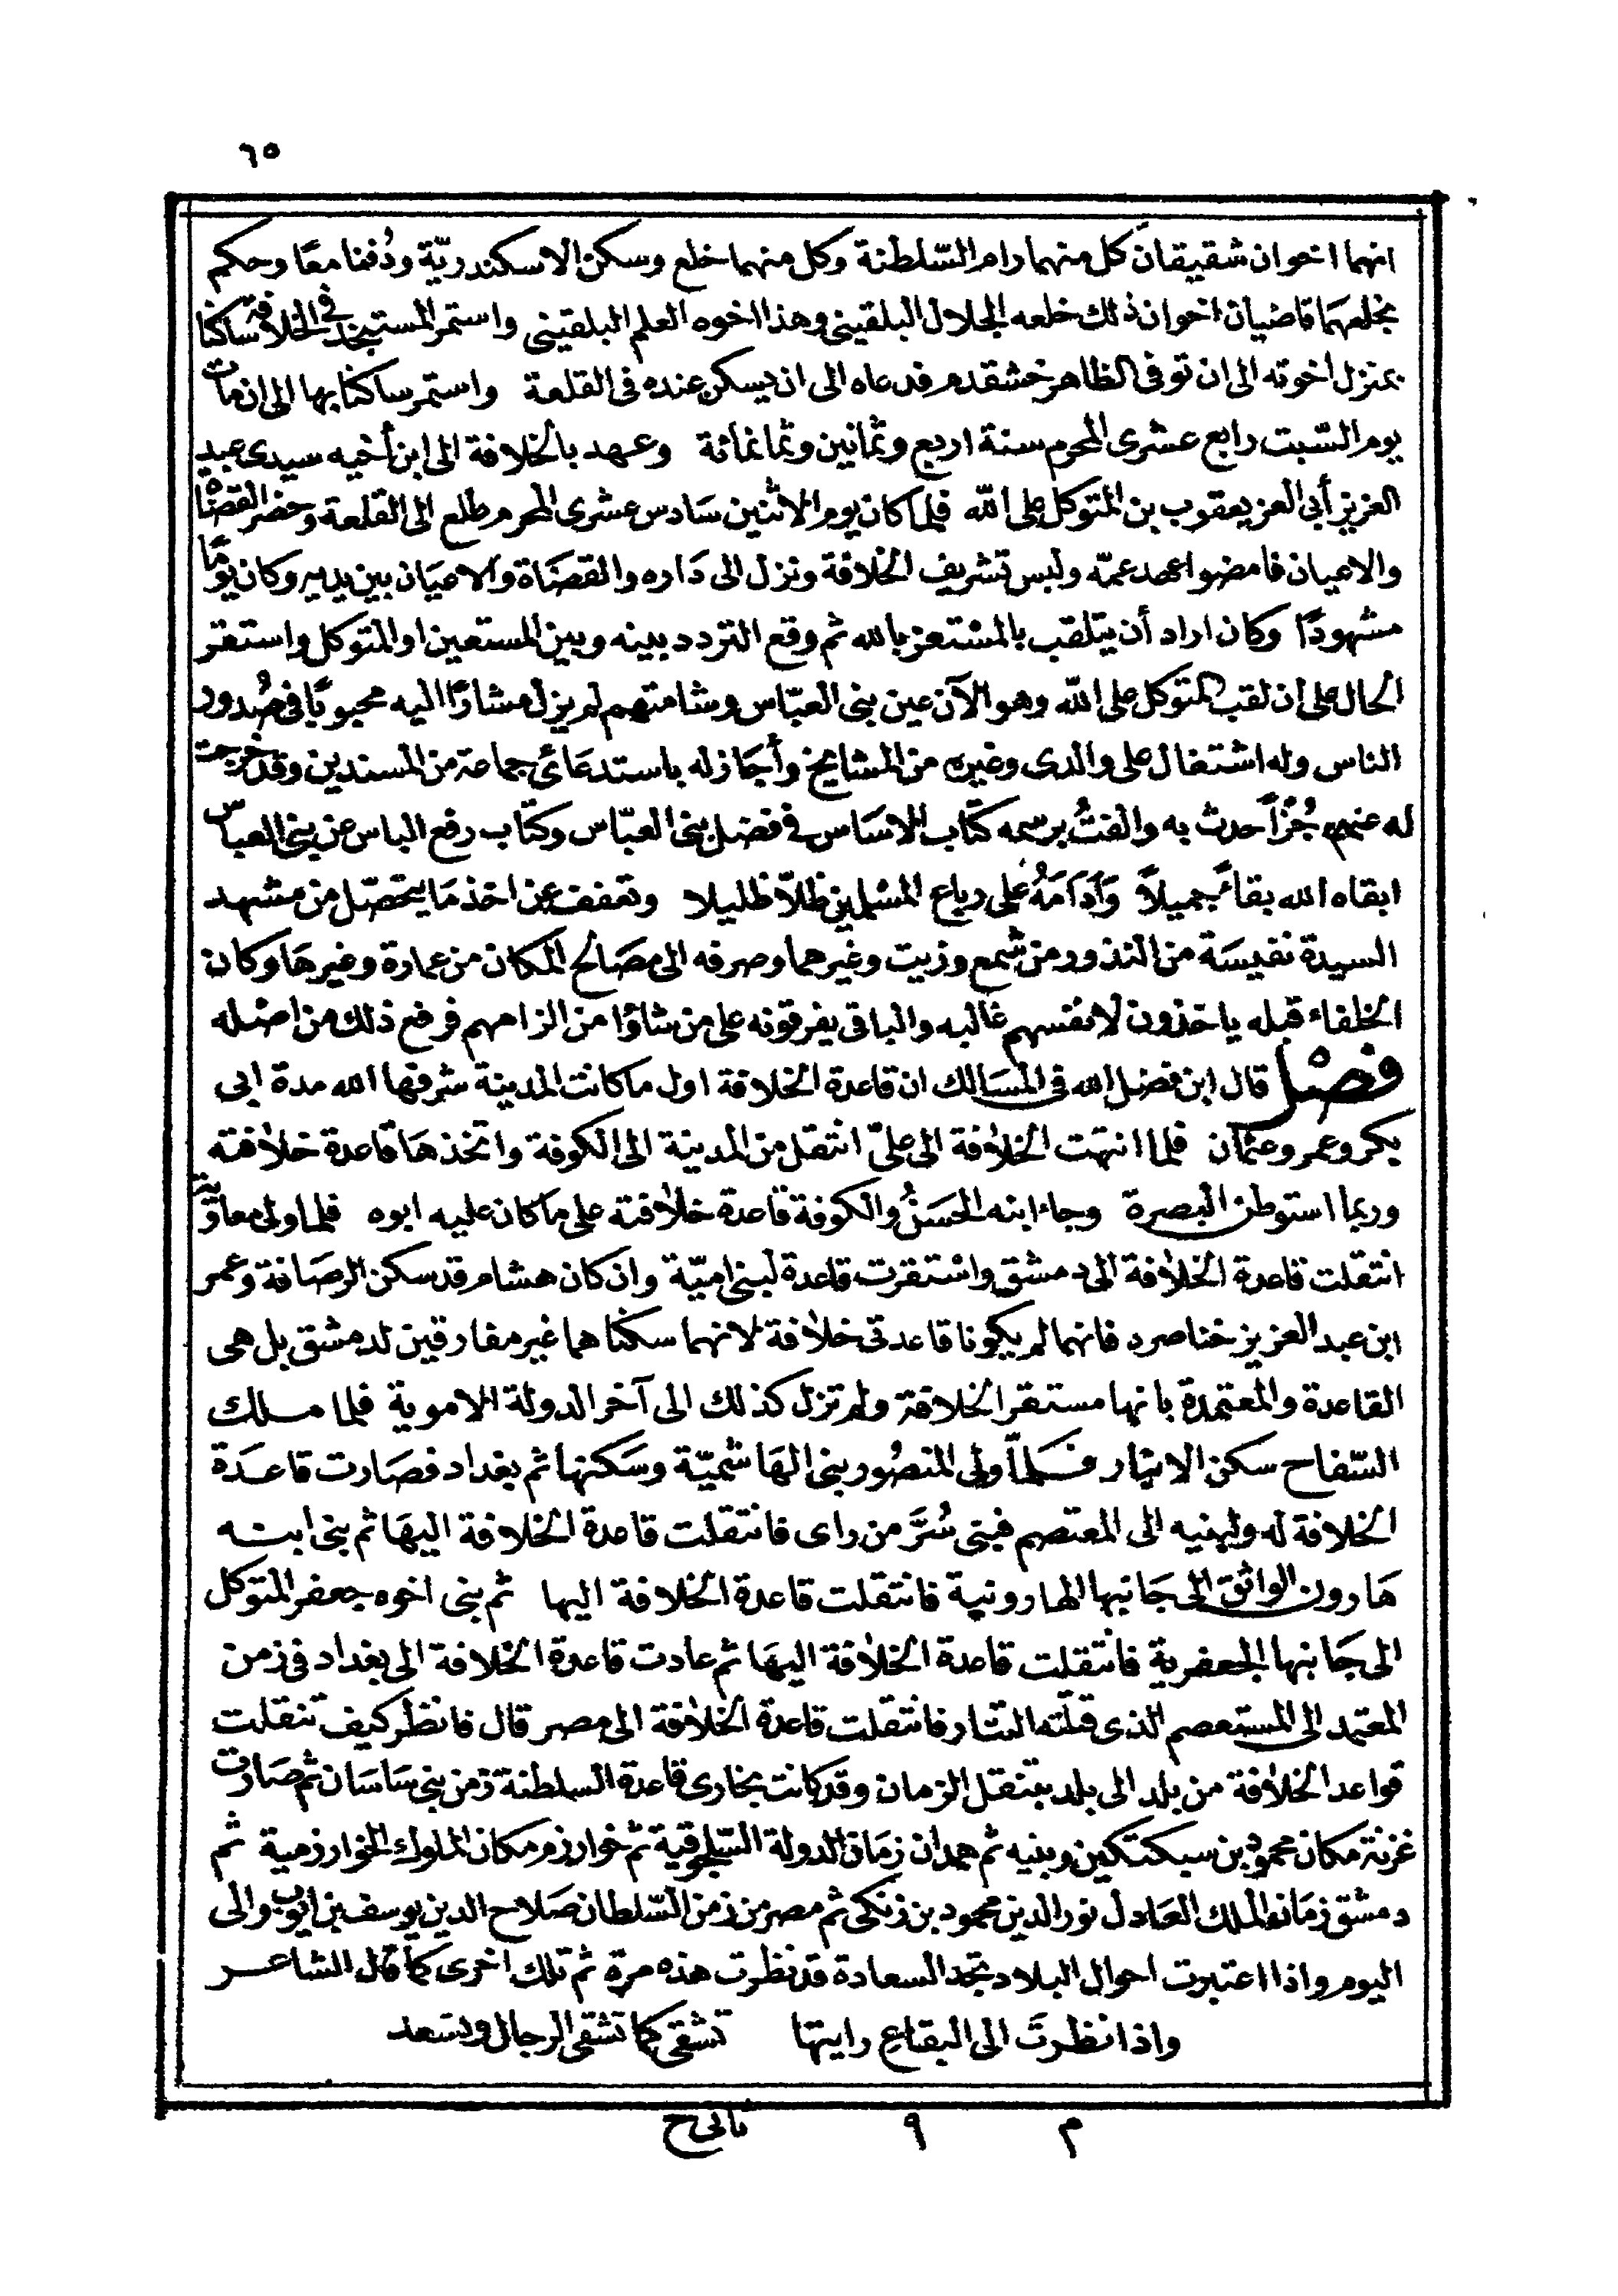 ٦٥
انهما اخوان شقيقان كل منهما رام السّلطنة وكل منهما خلع وسكن الاسكندريّة ودُفنا معًا وحكم
بخلعهما قاضيان اخوان ذلك خلعه الجلال البلقيني وهذا اخوه العلم البلقيني واستمر المستنجد فى الخلافة ساكنا
بمنزل اخوته الى ان توفى الظاهر خشقدم فدعاه الى ان يسكن عنده فى القلعة واستمر ساكنا بها الى ان مات
يوم السّبت رابع عشرى المحرم سنة اربع وثمانين وثمانمائة وعهد بالخلافة الى ابن أخيه سيدى عبد
العزيز أبى العز يعقوب بن المتوكل على الله فلما كان يوم الاثنين سادس عشرى المحرم طلع الى القلعة وحضر القضاة
والاعيان فامضوا عهد عمّه ولبس تشريف الخلافة ونزل الى دَاره والقضَاة والاعيَان بين يديه وكان يومًا
مشهودًا وكان اراد أن يتلقب بالمستعز بالله ثم وقع التردد بينه وبين المستعين او المتوكل واستقر
الحال على ان لقب المتوكل على الله وهو الآن عين بنى العبّاس وشامتهم لم يزل مشارًا اليه محبوبًا فى صُدور
الناس وله اشتغال على والدى وغيره من المشايخ وأجاز له باستدعائى جماعة من المسندين وقد خرجت
له عنهم جُزأً حدث به والفتُ برسمه كتاب الاسَاس فى فضل بنى العبّاس وكتاب رفع الباس عن بنى العباس
ابقاه الله بقاءً جميلاً وَأدَامَهُ على رباع المسلمين ظلاّ ظليلا وتعفف عن اخذ مَا يتحصّل من مشهد
السيدة نفيسَة من النذور ومن شمع وزيت وغيرهما وصرفه الى مصَالح المكان من عمارة وغيرهَا وكان
الخلفاء قبله ياخذون لانفسهم غالبه والباقى يفرقونه على من شاؤا من الزامهم فرفع ذلك من اصله
فصْل قال ابن فضل الله فى المسَالك ان قاعدة الخلافة اول ما كانت المدينة شرفها الله مدة ابى
بكر وعمر وعثمان فلما انتهت الخلافة الى علىّ انتقل من المدينة الى الكوفة واتخذهَا قاعدة خلافته
وربما استوطن البصرة وجاء ابنه الحسَنُ والكوفة قاعدة خلافته على ما كان عليه ابوه فلما ولى معاوية
انتقلت قاعدة الخلافة الى دمشق واستقرت قاعدة لبنى اميّة وان كان هشام قد سكن الرصَافة وعمر
ابن عبد العزيز خناصره فانهما لم يكونا قاعدتى خلافة لانهما سكناهما غير مفارقين لدمشق بل هى
القاعدة والمعتمدة بانها مستقر الخلافة ولم تزل كذلك الى آخر الدولة الاموية فلما ملك
السّفاح سكن الانبار فلمّا ولى المنصُور بنى الهَاشميّة وسَكنها ثم بغداد فصَارت قاعدَة
الخلافة له ولبنيه الى المعتصم فبنى سُرَّ من راى فانتقلت قاعدة الخلافة اليهَا ثم بنى ابنه
هَارون الواثق الى جانبها الهارونية فانتقلت قاعدة الخلافة اليها ثم بنى اخوه جعفر المتوكل
الى جَانبها الجعفرية فانتقلت قاعدة الخلافة اليهَا ثم عادت قاعدة الخلافة الى بغداد فى زمن
المعتمد الى المستعصم الذى قتلته التتار فانتقلت قاعدة الخلافة الى مصر قال فانظر كيف تنقلت
قواعد الخلافة من بلد الى بلد بتنقل الزمان وقد كانت بخارى قاعدة السلطنة زمن بنى سَاسَان ثم صَارت
غزنة مكان محمود بن سبكتكين وبنيه ثم همدان زمَان الدولة السّلجوقية ثم خوارزم مكان الملوك الخوارزمية ثم
دمشق زمان الملك العَادل نور الدين محمود بن زنكى ثم مصر من زمن السّلطان صَلاح الدين يوسف بن ايوب والى
اليوم واذا اعتبرت احوال البلاد تجد السعادة قد نظرت هذه مرة ثم تلك اخرى كما قال الشاعر
واذا نظرتَ الى البقاعِ رايتها تشقى كما تشقى الرجال وتسعد
م ٩ ثانى ح